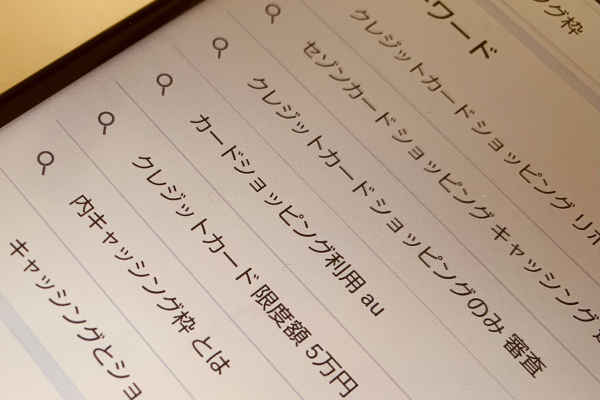 グ枠
ワード
クレジットカードショッピング リボ
セゾンカードショッピング キャッシング
クレジットカードショッピングのみ 審査
カードショッピング利用 au
クレジットカード 限度額 5万円
内キャッシング枠 とは
キャッシングとショ